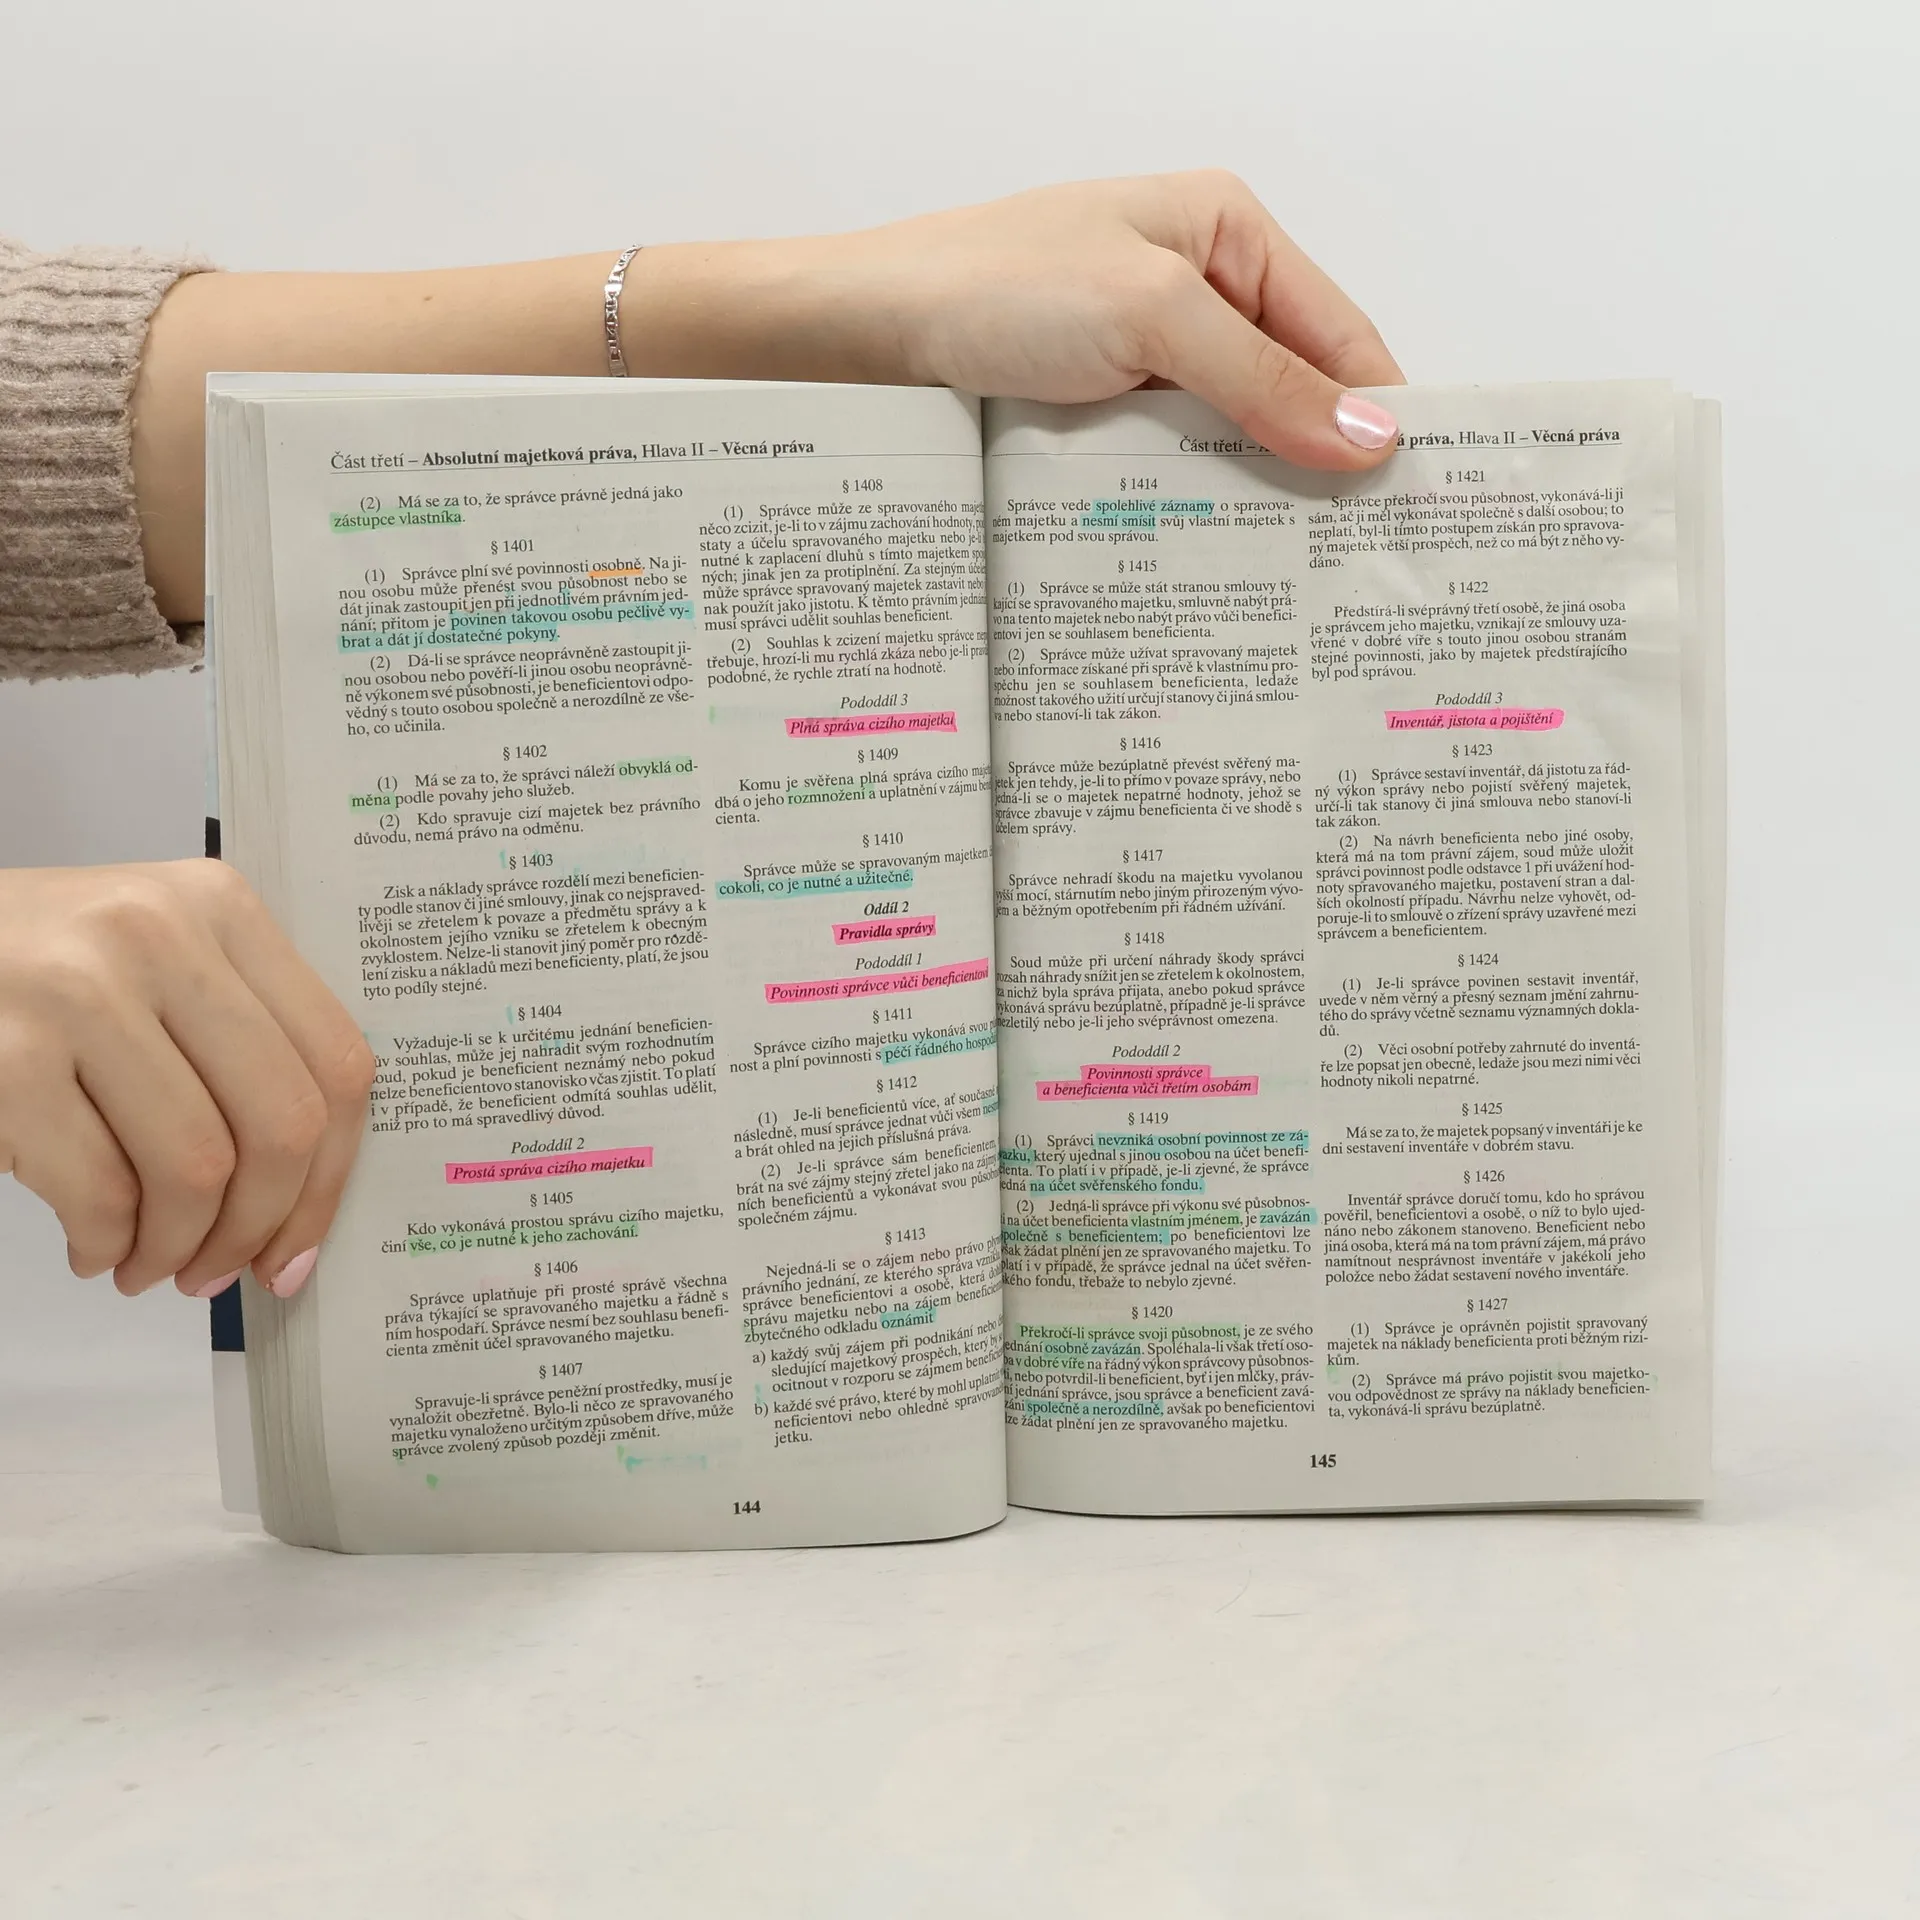 Část třetí – Absolutní majetková práva, Hlava II – Věcná práva
(2) Má se za to, že správce právně jedná jako
zástupce vlastníka.
§ 1401
(1) Správce plní své povinnosti osobně. Na ji-
nou osobu může přenést svou působnost nebo se
dát jinak zastoupit jen při jednotlivém právním jed-
nání; přitom je povinen takovou osobu pečlivě vy-
brat a dát jí dostatečné pokyny.
(2) Dá-li se správce neoprávněně zastoupit ji-
nou osobou nebo pověří-li jinou osobu neoprávně-
ně výkonem své působnosti, je beneficientovi odpo-
vědný s touto osobou společně a nerozdílně ze vše-
ho, co učinila.
§ 1402
(1) Má se za to, že správci náleží obvyklá od-
měna podle povahy jeho služeb.
(2) Kdo spravuje cizí majetek bez právního
důvodu, nemá právo na odměnu.
§ 1403
Zisk a náklady správce rozdělí mezi beneficien-
ty podle stanov či jiné smlouvy, jinak co nejspraved-
livěji se zřetelem k povaze a předmětu správy a k
okolnostem jejího vzniku se zřetelem k obecným
zvyklostem. Nelze-li stanovit jiný poměr pro rozdě-
lení zisku a nákladů mezi beneficienty, platí, že jsou
tyto podíly stejné.
§ 1404
Vyžaduje-li se k určitému jednání beneficien-
ův souhlas, může jej nahradit svým rozhodnutím
oud, pokud je beneficient neznámý nebo pokud
nelze beneficientovo stanovisko včas zjistit. To platí
i v případě, že beneficient odmítá souhlas udělit,
aniž pro to má spravedlivý důvod.
Pododdíl 2
Prostá správa cizího majetku
§ 1405
Kdo vykonává prostou správu cizího majetku,
činí vše, co je nutné k jeho zachování.
§ 1406
Správce uplatňuje při prosté správě všechna
práva týkající se spravovaného majetku a řádně s
ním hospodaří. Správce nesmí bez souhlasu benefi-
cienta změnit účel spravovaného majetku.
§ 1407
Spravuje-li správce peněžní prostředky, musí je
vynaložit obezřetně. Bylo-li něco ze spravovaného
majetku vynaloženo určitým způsobem dříve, může
správce zvolený způsob později změnit.
§ 1408
(1) Správce může ze spravovaného
něco zcizit, je-li to v zájmu zachování hodnoty,
staty a účelu spravovaného majetku nebo je-li
nutné k zaplacení dluhů s tímto majetkem
ných; jinak jen za protiplnění. Za stejným
může správce spravovaný majetek zastavit
nak použít jako jistotu. K těmto právním
musí správci udělit souhlas beneficient.
(2) Souhlas k zcizení majetku správce
třebuje, hrozí-li mu rychlá zkáza nebo je-li
podobné, že rychle ztratí na hodnotě.
Pododdíl 3
Plná správa cizího majetku
§ 1409
Komu je svěřena plná správa cizího
dbá o jeho rozmnožení a uplatnění v zájmu
cienta.
§ 1410
Správce může se spravovaným majetkem
cokoli, co je nutné a užitečné.
Oddíl 2
Pravidla správy
Pododdíl 1
Povinnosti správce vůči beneficientovi
§ 1411
Správce cizího majetku vykonává svou
nost a plní povinnosti s péčí řádného
§ 1412
(1) Je-li beneficientů více, ať současně
následně, musí správce jednat vůči všem
a brát ohled na jejich příslušná práva.
(2) Je-li správce sám beneficientem,
brát na své zájmy stejný zřetel jako na
ních beneficientů a vykonávat svou
společném zájmu.
§ 1413
Nejedná-li se o zájem nebo právo
právního jednání, ze kterého správa
správce beneficientovi a osobě, která
správu majetku nebo na zájem
zbytečného odkladu oznámit
a) každý svůj zájem při podnikání nebo
sledující majetkový prospěch, který by
ocitnout v rozporu se zájmem
b) každé své právo, které by mohl
neficientovi nebo ohledně
jetku.
144
Část třetí – á práva, Hlava II – Věcná práva
§ 1414
Správce vede spolehlivé záznamy o spravova-
ném majetku a nesmí smísit svůj vlastní majetek s
majetkem pod svou správou.
§ 1415
(1) Správce se může stát stranou smlouvy tý-
kající se spravovaného majetku, smluvně nabýt prá-
vo na tento majetek nebo nabýt právo vůči benefici-
entovi jen se souhlasem beneficienta.
(2) Správce může užívat spravovaný majetek
nebo informace získané při správě k vlastnímu pro-
spěchu jen se souhlasem beneficienta, ledaže
možnost takového užití určují stanovy či jiná smlou-
va nebo stanoví-li tak zákon.
§ 1416
Správce může bezúplatně převést svěřený ma-
jetek jen tehdy, je-li to přímo v povaze správy, nebo
jedná-li se o majetek nepatrné hodnoty, jehož se
správce zbavuje v zájmu beneficienta či ve shodě s
účelem správy.
§ 1417
Správce nehradí škodu na majetku vyvolanou
vyšší mocí, stárnutím nebo jiným přirozeným vývo-
jem a běžným opotřebením při řádném užívání.
§ 1418
Soud může při určení náhrady škody správci
rozsah náhrady snížit jen se zřetelem k okolnostem,
za nichž byla správa přijata, anebo pokud správce
vykonává správu bezúplatně, případně je-li správce
nezletilý nebo je-li jeho svéprávnost omezena.
Pododdíl 2
Povinnosti správce
a beneficienta vůči třetím osobám
§ 1419
(1) Správci nevzniká osobní povinnost ze zá-
vazku, který ujednal s jinou osobou na účet benefi-
cienta. To platí i v případě, je-li zjevné, že správce
jedná na účet svěřenského fondu.
(2) Jedná-li správce při výkonu své působnos-
ti na účet beneficienta vlastním jménem, je zavázán
společně s beneficientem; po beneficientovi lze
však žádat plnění jen ze spravovaného majetku. To
platí i v případě, že správce jednal na účet svěřen-
ského fondu, třebaže to nebylo zjevné.
§ 1420
Překročí-li správce svoji působnost, je ze svého
jednání osobně zavázán. Spoléhala-li však třetí oso-
ba v dobré víře na řádný výkon správcovy působnos-
ti, nebo potvrdil-li beneficient, byť i jen mlčky, práv-
ní jednání správce, jsou správce a beneficient zavá-
záni společně a nerozdílně, avšak po beneficientovi
lze žádat plnění jen ze spravovaného majetku.
§ 1421
Správce překročí svou působnost, vykonává-li ji
sám, ač ji měl vykonávat společně s další osobou; to
neplatí, byl-li tímto postupem získán pro spravova-
ný majetek větší prospěch, než co má být z něho vy-
dáno.
§ 1422
Předstírá-li svéprávný třetí osobě, že jiná osoba
je správcem jeho majetku, vznikají ze smlouvy uza-
vřené v dobré víře s touto jinou osobou stranám
stejné povinnosti, jako by majetek předstírajícího
byl pod správou.
Pododdíl 3
Inventář, jistota a pojištění
§ 1423
(1) Správce sestaví inventář, dá jistotu za řád-
ný výkon správy nebo pojistí svěřený majetek,
určí-li tak stanovy či jiná smlouva nebo stanoví-li
tak zákon.
(2) Na návrh beneficienta nebo jiné osoby,
která má na tom právní zájem, soud může uložit
správci povinnost podle odstavce 1 při uvážení hod-
noty spravovaného majetku, postavení stran a dal-
ších okolností případu. Návrhu nelze vyhovět, od-
poruje-li to smlouvě o zřízení správy uzavřené mezi
správcem a beneficientem.
§ 1424
(1) Je-li správce povinen sestavit inventář,
uvede v něm věrný a přesný seznam jmění zahrnu-
tého do správy včetně seznamu významných dokla-
dů.
(2) Věci osobní potřeby zahrnuté do inventá-
ře lze popsat jen obecně, ledaže jsou mezi nimi věci
hodnoty nikoli nepatrné.
§ 1425
Má se za to, že majetek popsaný v inventáři je ke
dni sestavení inventáře v dobrém stavu.
§ 1426
Inventář správce doručí tomu, kdo ho správou
pověřil, beneficientovi a osobě, o níž to bylo ujed-
náno nebo zákonem stanoveno. Beneficient nebo
jiná osoba, která má na tom právní zájem, má právo
namítnout nesprávnost inventáře v jakékoli jeho
položce nebo žádat sestavení nového inventáře.
§ 1427
(1) Správce je oprávněn pojistit spravovaný
majetek na náklady beneficienta proti běžným rizi-
kům.
(2) Správce má právo pojistit svou majetko-
vou odpovědnost ze správy na náklady beneficien-
ta, vykonává-li správu bezúplatně.
145